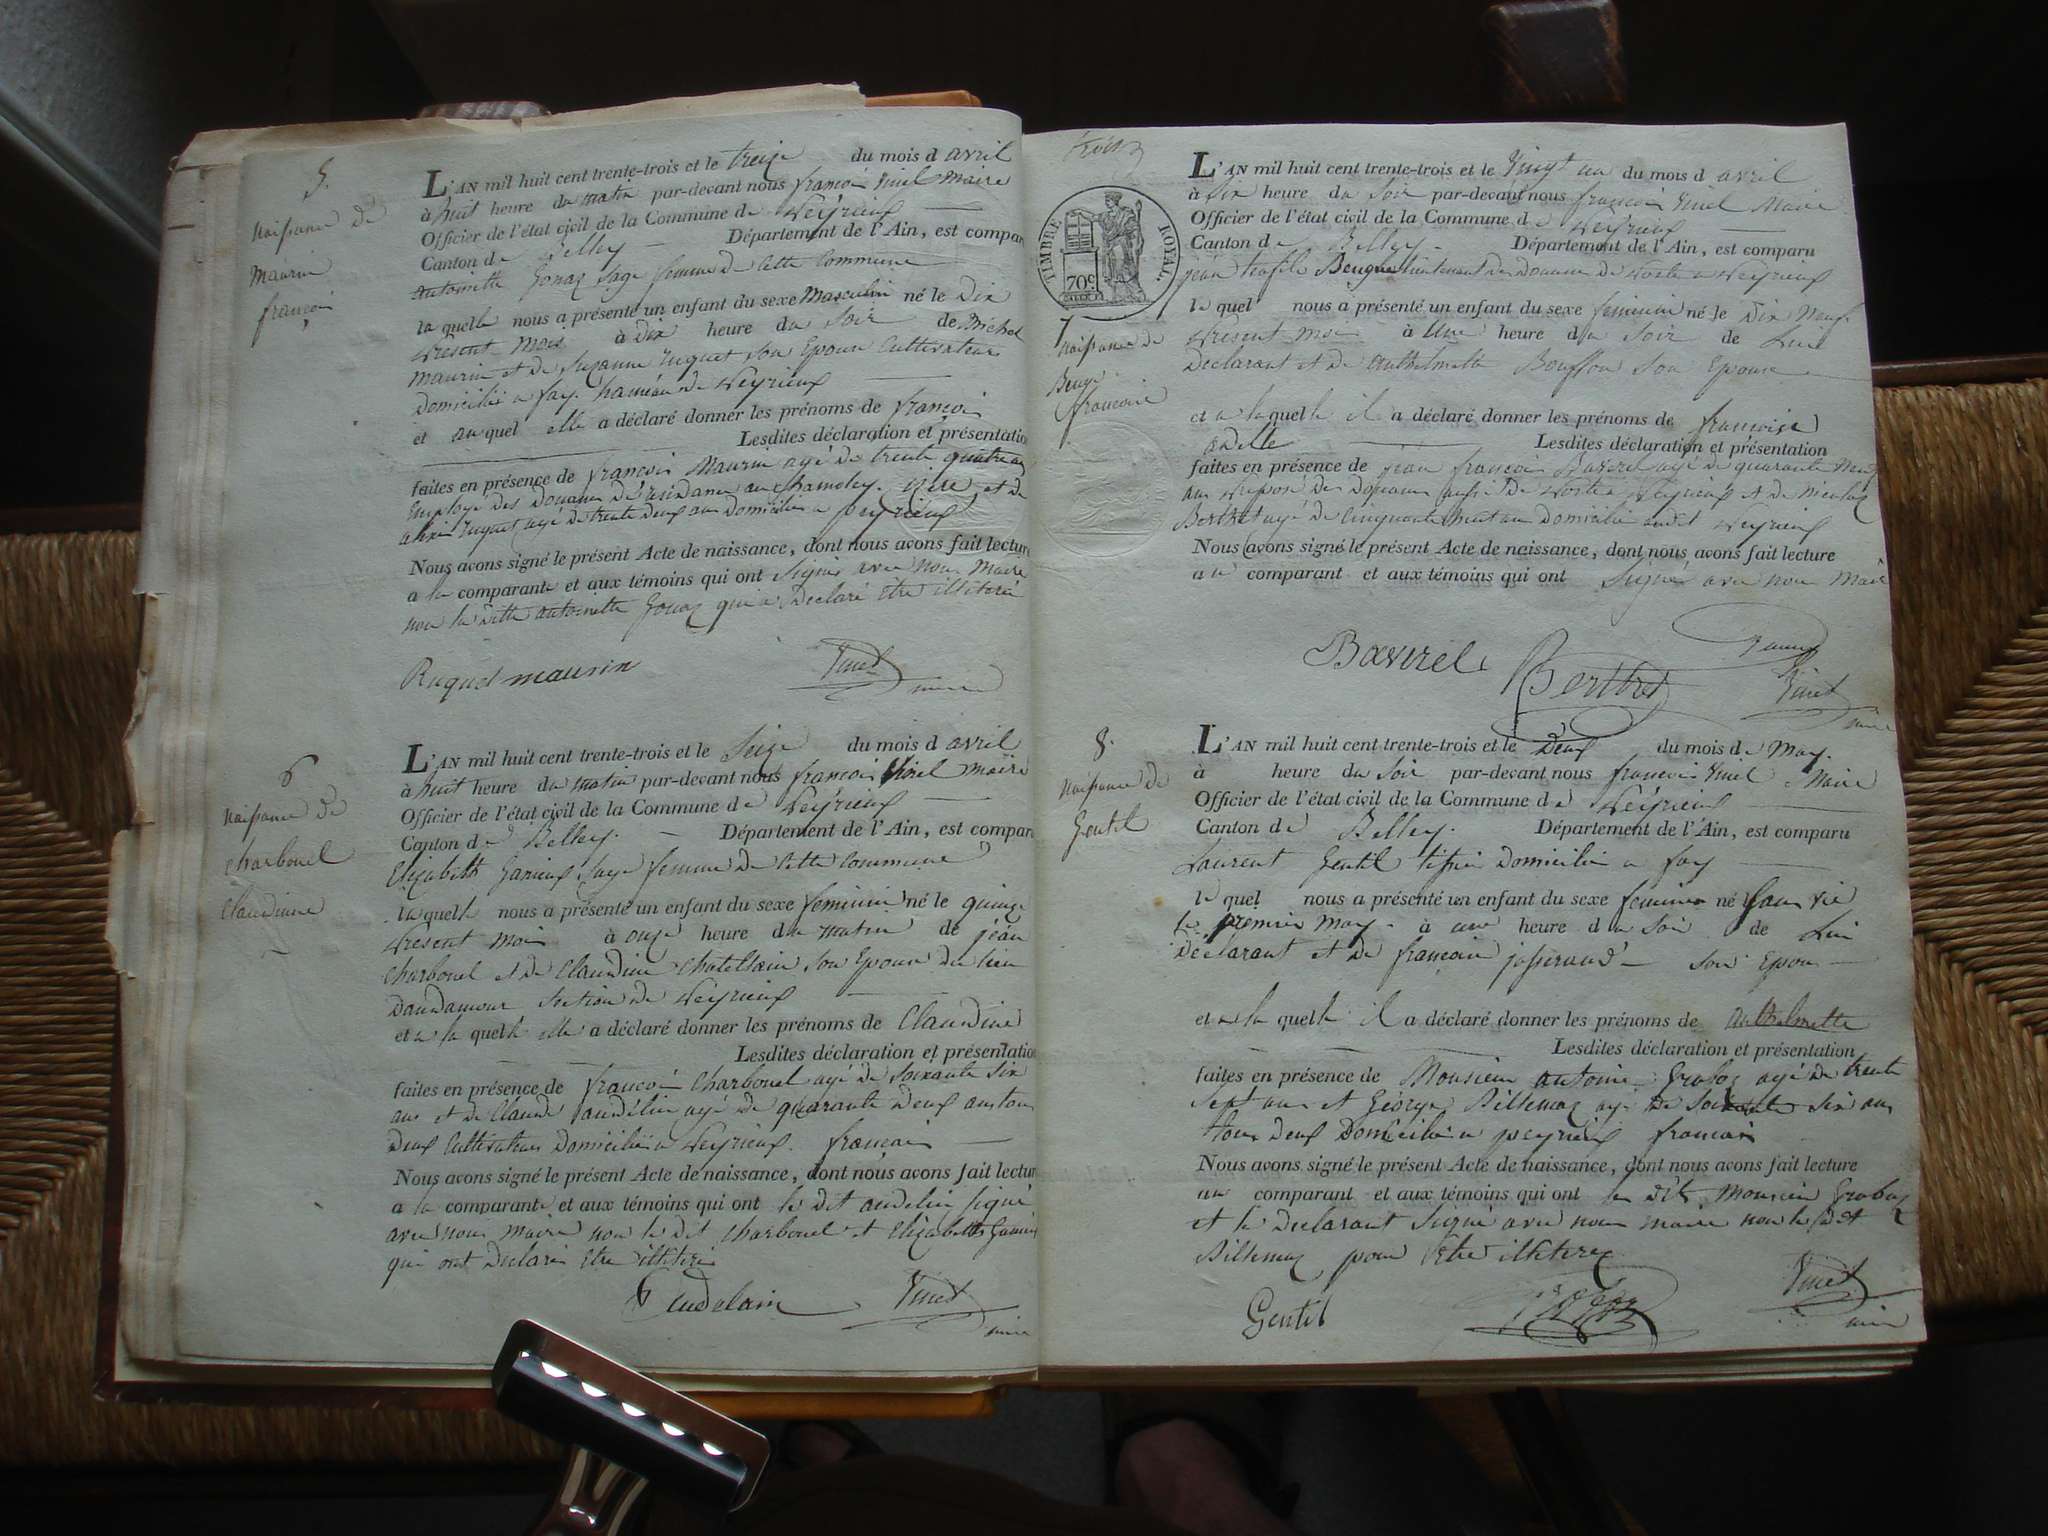 5.
Naissance de
Maurin
françois
L'AN mil huit cent trente-trois et le treize du mois d avril
à huit heure du matin par-devant nous françois Vinel Maire
Officier de l'état civil de la Commune de Peyrieux
Canton de Belley Département de l'Ain, est compar
antoinette Gonaz sage femme de cette Commune
la quelle nous a présenté un enfant du sexe Masculin né le Dix
present mois à Dix heure du Soir de Michel
Maurin et de Suzanne ruquet son Epouse Cultivateurs
domiciliés a fay hameau de Peyrieux
et au quel elle a déclaré donner les prénoms de françois
Lesdites déclaration et présentation
faites en présence de françois Maurin agé de trente quatre ans
Employé des Douanes de residance au isere et de
ruquet agé de trente deux ans domicilié a peyrieux
Nous avons signé le présent Acte de naissance, dont nous avons fait lecture
a la comparante et aux témoins qui ont signés avec nous Maire
non la ditte antoinette Gonaz qui a Declaré Etre illiteré
Ruquet maurin Vinel maire
6
Naissance de
Charbonel
Claudinne
L'AN mil huit cent trente-trois et le Seize du mois d avril
à huit heure du matin par-devant nous françois Vinel maire
Officier de l'état civil de la Commune de Peyrieux
Canton de Belley. Département de l'Ain, est compar
Elizabeth Ganieux Sage femme de Cette Commune
la quelle nous a présenté un enfant du sexe feminin né le quinze
present mois à onze heure du matin de jean
Charbonel et de Claudine Chatellain son Epouse du lieu
Dandamour Section de Peyrieux
et a la quelle elle a déclaré donner les prénoms de Claudine
Lesdites déclaration et présentation
faites en présence de françois Charbonel agé de Soixante Six
ans et de Claude audélin agé de quarante Deux ans tous
deux Cultivateurs Domiciliés a Peyrieux. francais
Nous avons signé le présent Acte de naissance, dont nous avons fait lectur
a la comparante et aux témoins qui ont le dit audelin signé
avec nous maire non le dit Charbonel et Elizabeth Ganieux
qui ont Declarés Etre illiterés
Audelain Vinel maire
TIMBRE ROYAL.
70c
7
Naissance de
Beuge
francoise
L'AN mil huit cent trente-trois et le Vingt un du mois d avril
à six heure du Soir par-devant nous françois Vinel Maire
Officier de l'état civil de la Commune de Peyrieux
Canton de Belley. Département de l'Ain, est comparu
jean Lieutenant des Douanes de Poste a Peyrieux
le quel nous a présenté un enfant du sexe feminin né le Dix Neuf
present moi à Une heure du Soir de Lui
Declarant et de Anthelmette Bouffon Son Epouse
et a laquelle il a déclaré donner les prénoms de francoise
adelle Lesdites déclaration et présentation
faites en présence de jean françois Baverel agé de quarante Neuf
ans Préposé des Douanes aussi de Poste a Peyrieux et de Nicolas
Berthet agé de Cinquante huit ans Domicilié audit Peyrieux
Nous avons signé le présent Acte de naissance, dont nous avons fait lecture
au comparant et aux témoins qui ont Signés avec nous Maire
Baverel Berthet Vinel maire
8.
Naissance de
Gentil
L'AN mil huit cent trente-trois et le Deux du mois de May.
à heure du Soir par-devant nous francois Vinel Maire
Officier de l'état civil de la Commune de Peyrieux
Canton de Belley. Département de l'Ain, est comparu
Laurent Gentil tissier Domicilié a fay
le quel nous a présenté un enfant du sexe feminin né Sans vie
le premier May à une heure du Soir de Lui
Déclarant et de francoise josserand son Epouse
et a la quelle il a déclaré donner les prénoms de anthelmette
Lesdites déclaration et présentation
faites en présence de Monsieur antoine Groboz agé de trente
Sept ans et George Billemaz agé de Soixante Six ans
tous deux Domiciliés a peyrieux francais
Nous avons signé le présent Acte de naissance, dont nous avons fait lecture
au comparant et aux témoins qui ont le dit Monsieur Groboz
et le Declarant Signé avec nous maire non le dit
Billemaz pour Etre illiterez
Gentil Vinel maire